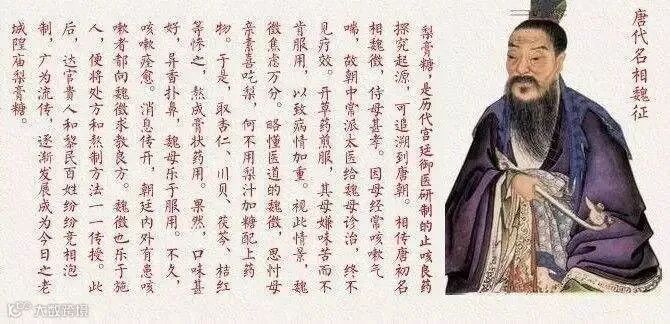 唐代名相魏征
梨膏糖，是历代宫廷御医研制的止咳良药
探究起源，可追溯到唐朝。相传唐初名
相魏徵，侍母甚孝。因母经常咳嗽气
喘，故朝中常派太医给魏母诊治，终不
见疗效。开草药煎服，其母嫌味苦而不
肯服用，以致病情加重。视此情景，魏
徵焦虑万分。略懂医道的魏徵，思忖母
亲素喜吃梨，何不用梨汁加糖配上药
物。于是，取杏仁、川贝、茯苓、桔红
等修之，熬成膏状药用。果然，口味甚
好，异香扑鼻，魏母乐于服用。不久，
咳嗽痊愈。消息传开，朝廷内外有患咳
嗽者都向魏徵求教良方。魏徵也乐于施
人，便将处方和熬制方法一一传授。此
后，达官贵人和黎民百姓纷纷竞相泡
制，广为流传，逐渐发展成为今日之老
城隍庙梨膏糖。
大数跨境